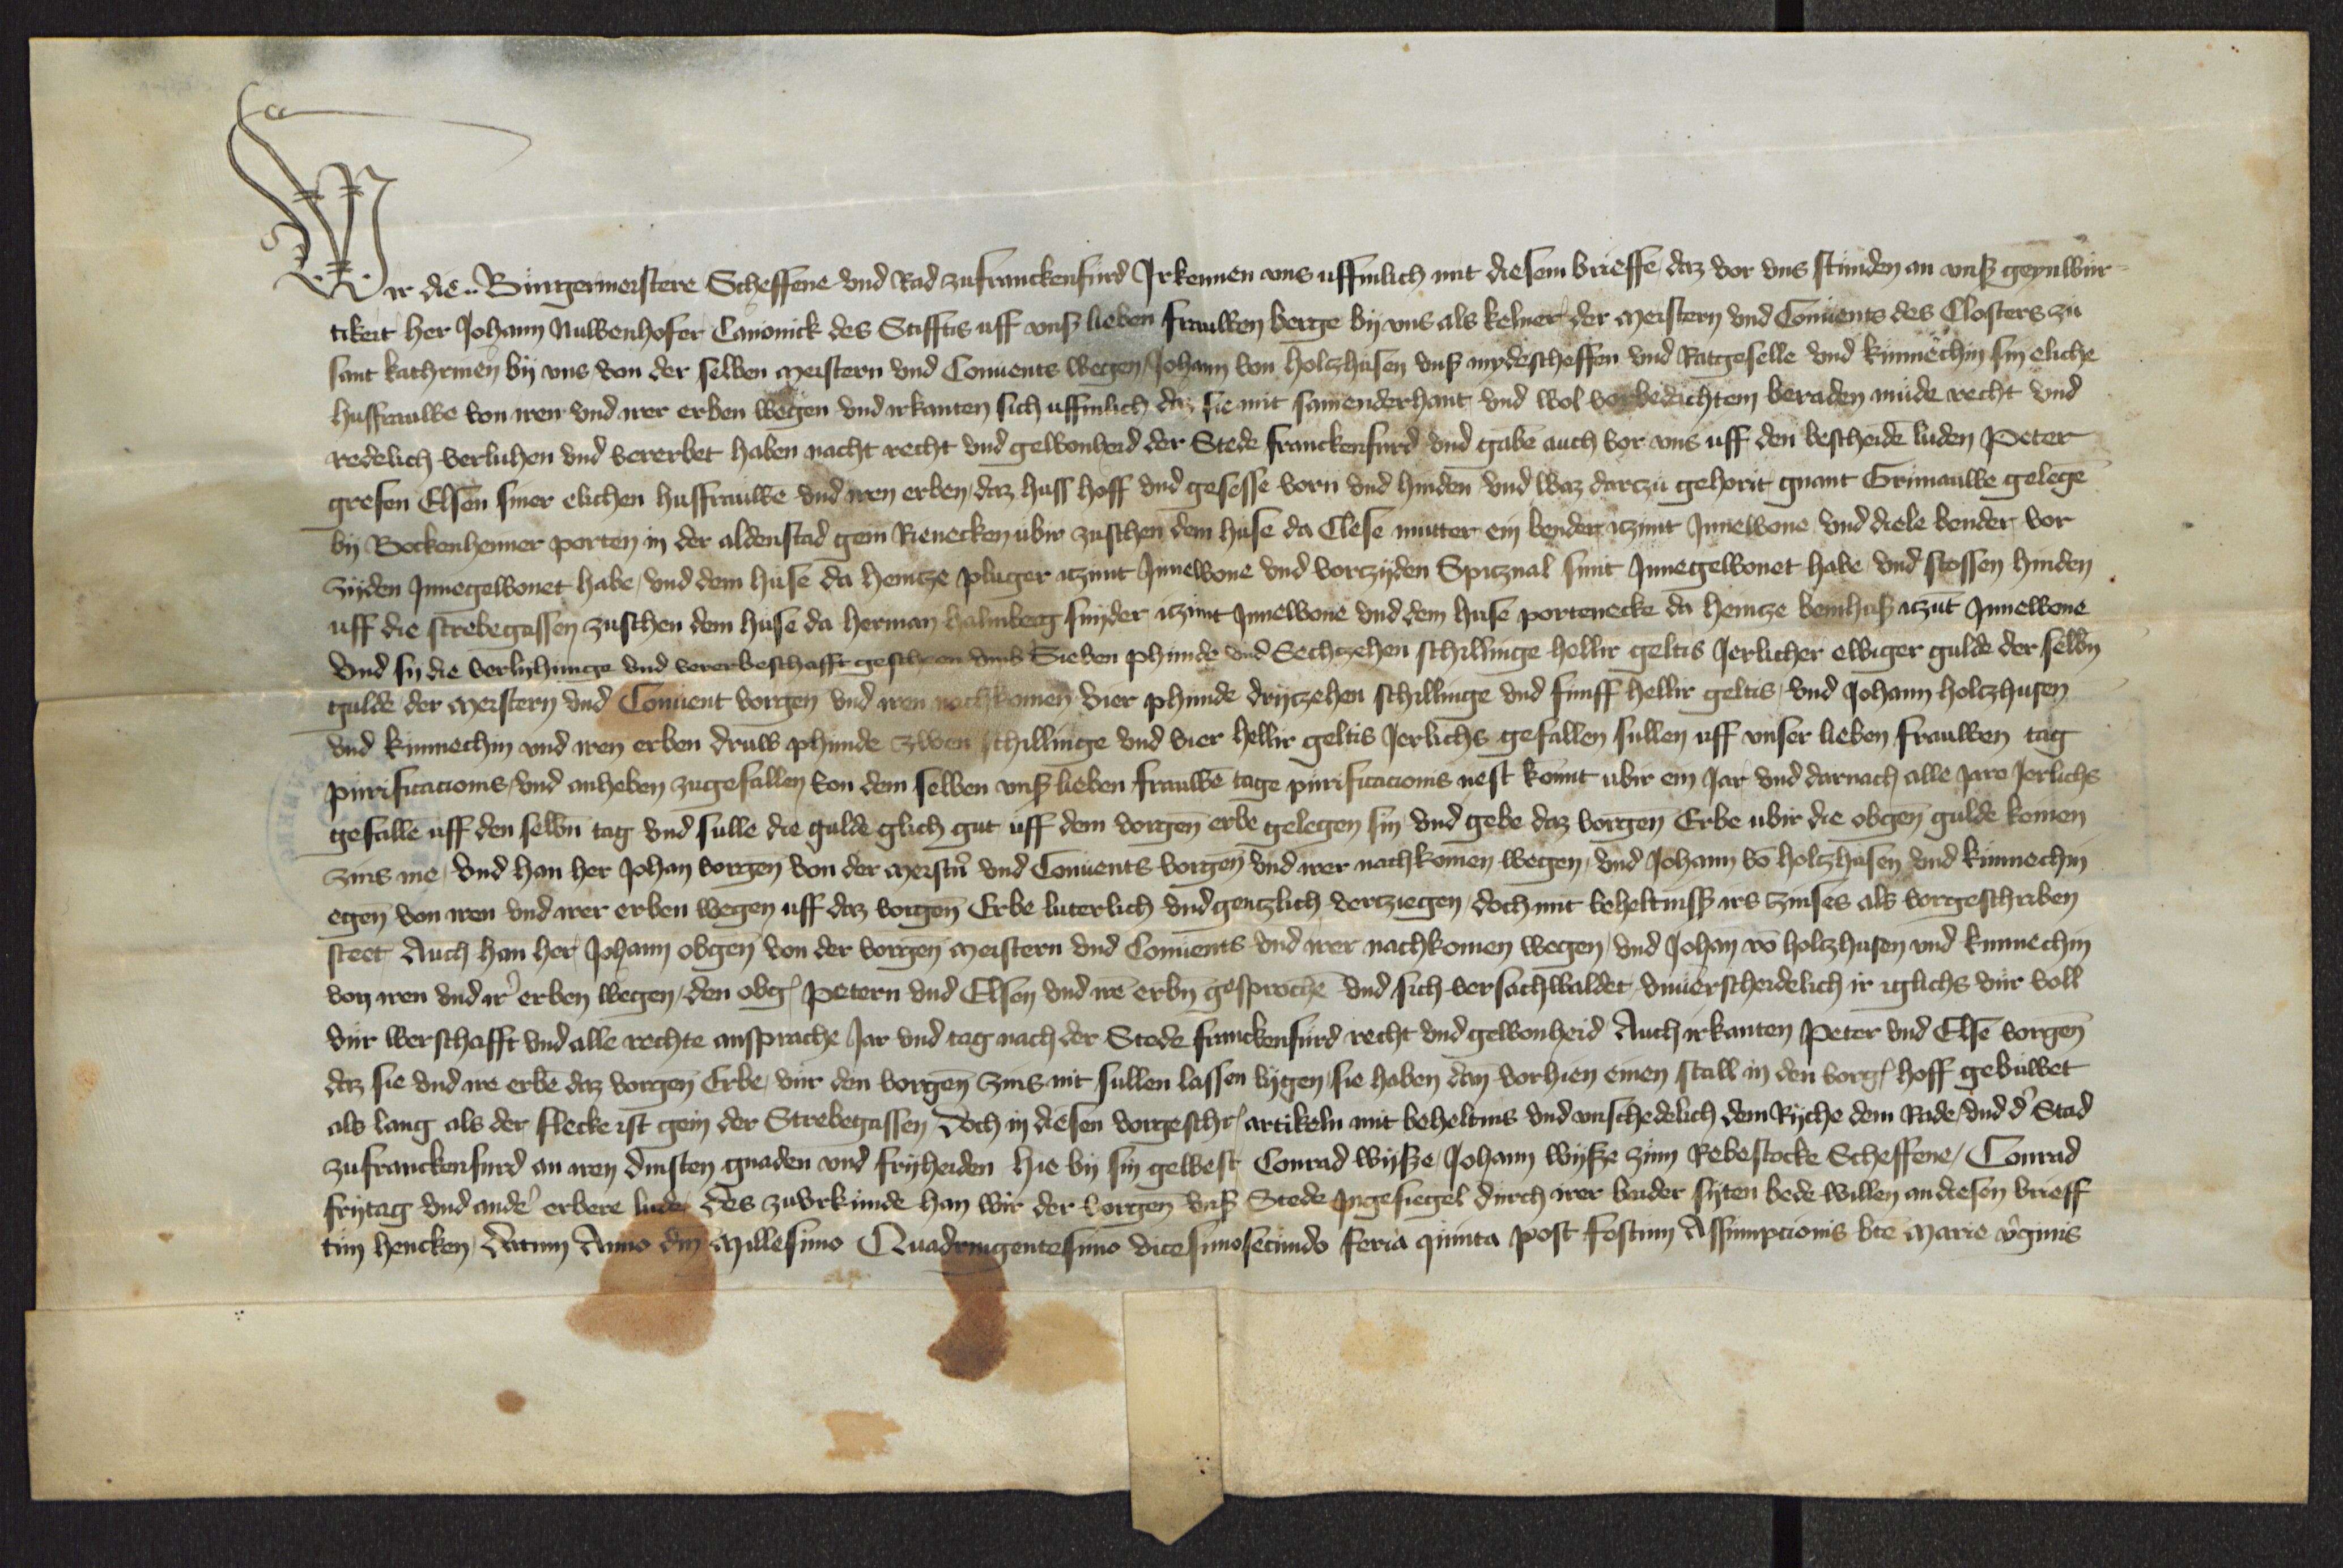 Wir die .. Burgermeistere Scheffene vnd Rad zufranckenfurd Irkennen vns uffinlich mit diesem brieffe, daz vor vns stunden an vnß geynwur-
tikeit her Johann Nuwenhofer Canonick des Stifftis uff vnß lieben frauwen berge by vns als kelner der meistern vnd Conuents des Closters zu
sant kathrinen by vns von der selben meistern vnd Conuents wegen, Johann von holtzhusen vnß mydescheffen vnd Ratgeselle vnd kinnechin sin eliche
husfrauwe von iren vnd irer erben wegen vnd irkanten sich uffinlich daz sie mit samenderhant vnd wol vorbedichtem beraden mude recht vnd
redelich verluhen vnd vererbet haben nacht recht vnd gewonheid der Stede franckenfurd vnd gabē auch vor vns uff den bescheidē luden Peter
gresen Elsen siner elichen husfrauwē vnd iren erben, daz huß hoff vnd gesesse vorn vnd hinden vnd waz darczu gehorit gnant Grinauwe gelegē
by Bockenheimer porten in der aldenstad gein Rienecken ubir zuschen dem huse da Clese mutter ein bender iczunt Innewone vnd diele bender vor
zijden Innegewonet habe, vnd dem huse da heincze pluger iczunt Innewone vnd vorczijden Spicznal smit Innegewonet habe vnd stossen hinden
uff die strebegassen zuschen dem huse da herman halmberg snyder iczunt Innewone vnd dem huse portenecke da heincze beinhuß iczūt Innewone
vnd sy die verlyhunge vnd vererbeschafft gescheen vmb Sieben phunde vnd Sechczehen schillinge hellir geltis Jerlicher ewiger gulde der selbn
gulde der meistern vnd Conuent vorgen̄ vnd iren nachkomen vier phunde dryczehen schillinge vnd funff hellir geltis, vnd Johann holczhusen
vnd kinnechin vnd iren erben druw phunde zwen schillinge vnd vier hellir geltis Jerlichs gefallen sullen uff vnser lieben frauwen tag
purificacionis, vnd anheben zugefallen von dem selben vnß lieben frauwē tage purificacionis nest komt ubir ein Jar vnd darnach alle Jare Jerlichs
gefallē uff den selbn̄ tag vnd sulle die gulde glich gut uff dem vorgen̄ erbe gelegen sin vnd gebe daz vorgen̄ Erbe ubir die obgen̄ gulde keinen
zins me, vnd han her Johan vorgen̄ von der meistn̄ vnd Conuents vorgen̄ vnd irer nachkomen wegen, vnd Johann vō holtzhusen vnd kinnechin
egen̄ von iren vnd irer erben wegen uff daz vorgen̄ Erbe luterlich vnd gentzlich verziegen, doch mit beheltniß irs zinses als vorgeschriben
steet Auch han her Johann obgen̄ von der vorgen̄ meistern vnd Conuents vnd irer nachkomen wegen, vnd Johan vō holtzhusen vnd kinnechin
von iren vnd ir' erben wegen, den obg' Petern vnd Elsen vnd irē erbn̄ gesprochē vnd sich versachwaldet vnuerscheidelich ir iglichs vur voll
vur werschafft vnd alle rechte ansprache Jar vnd tag nach der Stede franckenfurd recht vnd gewonheid Auch irkanten Peter vnd Else vorgen̄
daz sie vnd ire erbē daz vorgen̄ Erbe, vur den vorgen̄ zins nit sullen lassen lygen, sie haben dan vorhien einen stall in den vorg' hoff gebuwet
als lang als der flecke ist gein der Strebegassen Doch in diesen vorgeschr' artikeln mit beheltnis vnd vnschedelich dem Ryche dem Rade, vnd d' Stad
zufranckenfurd an iren dinsten gnaden vnd fryheiden hie by sin gewest Conrad wysße, Johann wysße zum Rebestocke Scheffene, Conrad
frytag vnd ande' erbere lude, des zuvrkunde han wir der vorgen̄ vnß Stede Ingesiegel durch irer beider syten bede willen an diesen brieff
tun hencken, Datum Anno dn̄i Millesimo Quadringentesimo vicesimosecundo feria quinta post festum Assumpcionis bte Marie v'ginis